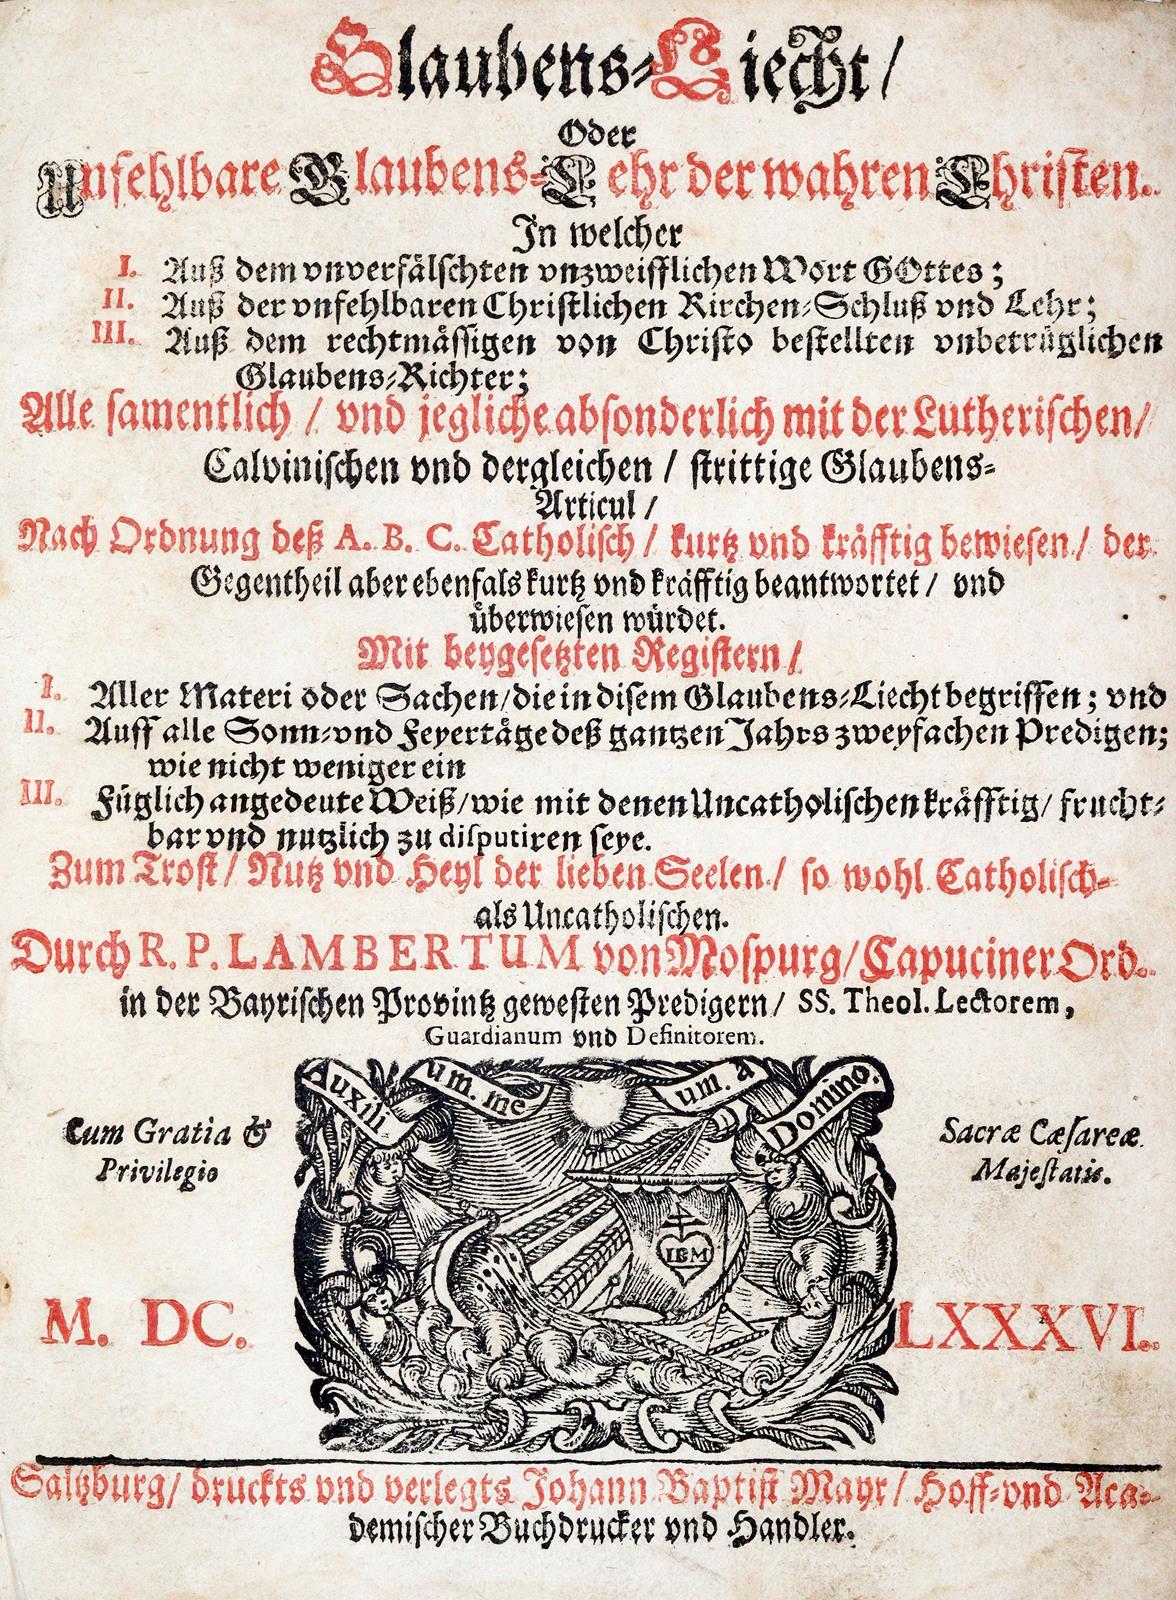 Glaubens-Liecht/
Oder
Unfehlbare Glaubens-Lehr der wahren Christen.
In welcher
I. Auß dem vnverfälschten vnzweifflichen Wort GOttes;
II. Auß der vnfehlbaren Christlichen Kirchen-Schluß vnd Lehr;
III. Auß dem rechtmässigen von Christo bestellten vnbetrüglichen
Glaubens-Richter;
Alle samentlich / vnd jegliche absonderlich mit der Lutherischen/
Calvinischen vnd dergleichen / strittige Glaubens-
Articul /
Nach Ordnung deß A. B. C. Catholisch / kurtz vnd kräfftig bewiesen / der
Gegentheil aber ebenfals kurtz vnd kräfftig beantwortet / vnd
überwiesen würdet.
Mit beygesetzten Registern /
I. Aller Materi oder Sachen/die in disem Glaubens-Liecht begriffen; vnd
II. Auff alle Sonn-vnd Feyertäge deß gantzen Jahrs zweyfachen Predigen;
wie nicht weniger ein
III. Füglich angedeute Weiß/wie mit denen Uncatholischen kräfftig/ frucht-
bar vnd nutzlich zu disputiren seye.
Zum Trost / Nutz vnd Heyl der lieben Seelen / so wohl Catholisch-
als Uncatholischen.
Durch R. P. LAMBERTUM von Mospurg/Capuciner Ord.
in der Bayrischen Provintz gewesten Predigern/ SS. Theol. Lectorem,
Guardianum vnd Definitorem.
Auxili um. me um. a Domino.
Cum Gratia & Sacræ Cæsareæ
Privilegio Majestatis.
IBM
M. DC. LXXXVI.
Saltzburg/ druckts vnd verlegts Johann Baptist Mayr / Hoff-vnd Aca-
demischer Buchdrucker vnd Handler.